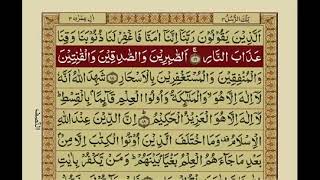 اٰل عمرٰن ٣ تلك الرسل ٣
اَلَّذِیْنَ یَقُوْلُوْنَ رَبَّنَاۤ اِنَّنَاۤ اٰمَنَّا فَاغْفِرْ لَنَا ذُنُوْبَنَا وَقِنَا
عَذَابَ النَّارِ اَلصّٰبِرِیْنَ وَالصّٰدِقِیْنَ وَالْقٰنِتِیْنَ
وَالْمُنْفِقِیْنَ وَالْمُسْتَغْفِرِیْنَ بِالْاَسْحَارِ شَهِدَ اللّٰهُ اَنَّهٗ
لَاۤ اِلٰهَ اِلَّا هُوَ وَالْمَلٰٓئِكَةُ وَاُولُوا الْعِلْمِ قَآئِمًۢا بِالْقِسْطِ
لَاۤ اِلٰهَ اِلَّا هُوَ الْعَزِیْزُ الْحَكِیْمُ اِنَّ الدِّیْنَ عِنْدَ اللّٰهِ
الْاِسْلَامُ وَمَا اخْتَلَفَ الَّذِیْنَ اُوْتُوا الْكِتٰبَ اِلَّا مِنْۢ
بَعْدِ مَا جَآءَهُمُ الْعِلْمُ بَغْیًۢا بَیْنَهُمْ وَمَنْ یَّكْفُرْ بِاٰیٰتِ